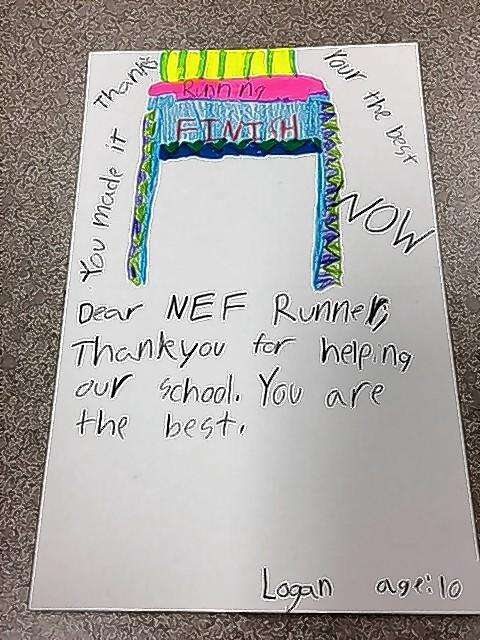 Thanks
Running
Your the best
FINISH
You made it
WOW
Dear NEF Runner,
Thankyou for helping
our school. You are
the best.
Logan age:10